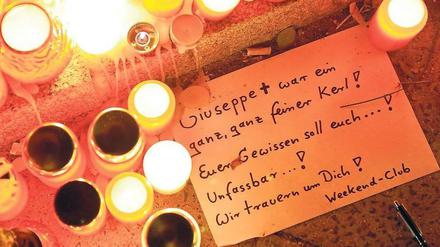 Giuseppe † war ein
ganz, ganz feiner Kerl!
Euer Gewissen soll euch...!
Unfassbar...!
Wir trauern um Dich!
Weekend-Club